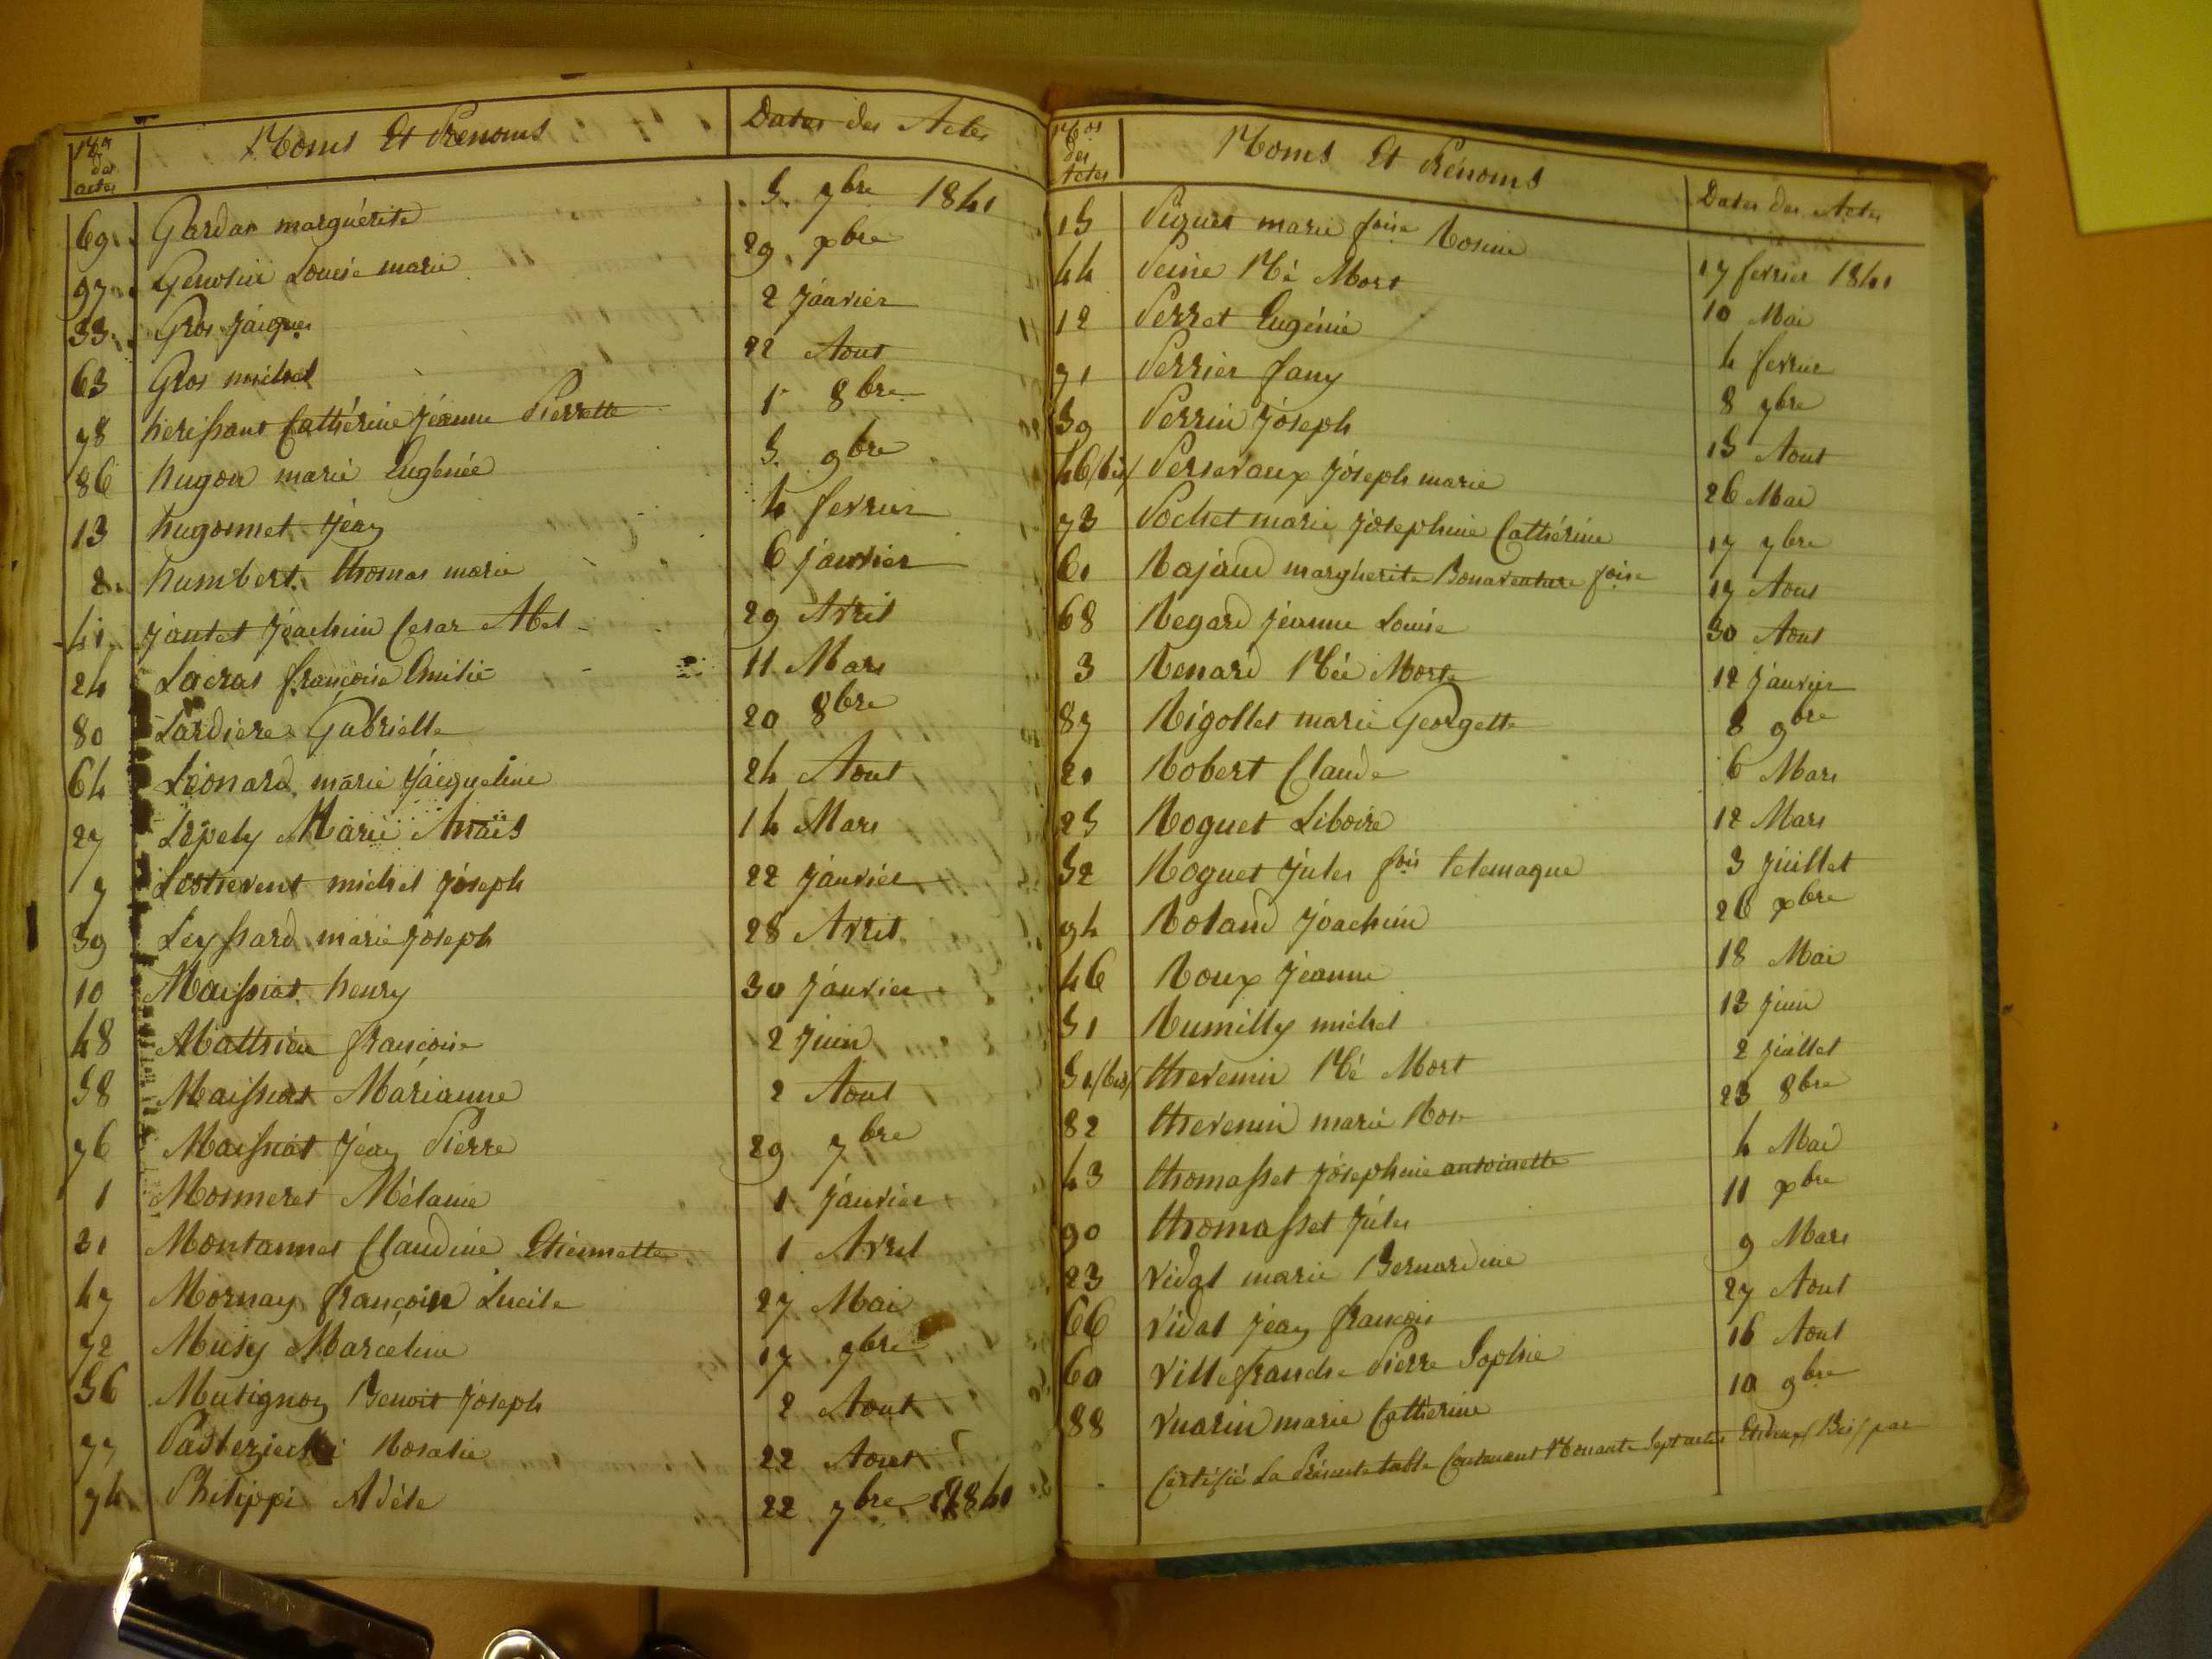 Nos des actes Noms Et Prénoms Dates des Actes
69 Gardar marguérite 5 7bre 1841
97 Louise marie 29 xbre
33 Gros Jacques 2 Janvier
63 Gros michel 22 Aout
78 herissant Cathérine Jéanne Pierrette 1r 8bre
86 hugon marie Eugénée 5 9bre
13 hugonnet Jéan 4 fevrier
2 humbert thomas marie 6 janvier
41 Jantet Jóachim Cesar Abel 29 Avril
24 Lacras françoise Emilie 11 Mars
80 Lardiere Gabrielle 20 8bre
64 Léonard marie Jacqueline 24 Aout
27 Lépely Marie Anaïs 14 Mars
7 Lestievent michel Jóseph 22 Janvier
39 Leyssard marie Joseph 28 Avril
10 Maissiat henry 30 Janvier
48 Matthieu françoise 2 Juin
58 Maissiat Márianne 2 Aout
76 Maissiat Jéan Pierre 29 7bre
1 Monneret Mélanie 1 Janvier
31 Montannet Claudine Etiennette 1 Avril
47 Mornay françoise Lucile 27 Mai
72 Musy Marceline 17 7bre
56 Mutignon Benoit Joseph 2 Aout
77 Rosalie 22 Aout
74 Philippi Adéle 22 7bre 1841
Nos des Actes Noms Et Prénoms Dates des Actes
15 Piquet marie foise Rosine 17 fevrier 1841
44 Peine Né Mort 10 Mai
12 Perret Eugénie 4 fevrier
71 Perrier fany 8 7bre
59 Perrin Jóseph 15 Aout
46/bis/ Persevaux Jóseph marie 26 Mai
73 Pochet marie Jósephine Cathérine 17 7bre
61 Rajaud marghérite Bonaventure foise 17 Aout
68 Regard Jéanne Louise 30 Aout
3 Renard Née Morte 12 Janvier
87 Rigollet marie Georgette 8 9bre
21 Robert Claude 6 Mars
25 Roguet Liboire 12 Mars
52 Roguet Jules fois telemaque 3 Juillet
94 Roland Jóachim 26 xbre
46 Roux Jéanne 18 Mai
51 Rumilly michel 13 Juin
51/bis/ thevenin Né Mort 2 Juillet
82 thevenin marie Rose 23 8bre
43 thomasset Jósephine antoinette 4 Mai
90 thomasset Jules 11 xbre
23 Vidal marie Bernardine 9 Mars
66 Vidal Jéan françois 27 Aout
60 Villefranche Pierre Sophie 16 Aout
88 Vuarin marie Catherine 10 9bre
Certifié La Présente table Contenant Nonante Sept actes Et deux/ Bis/ par